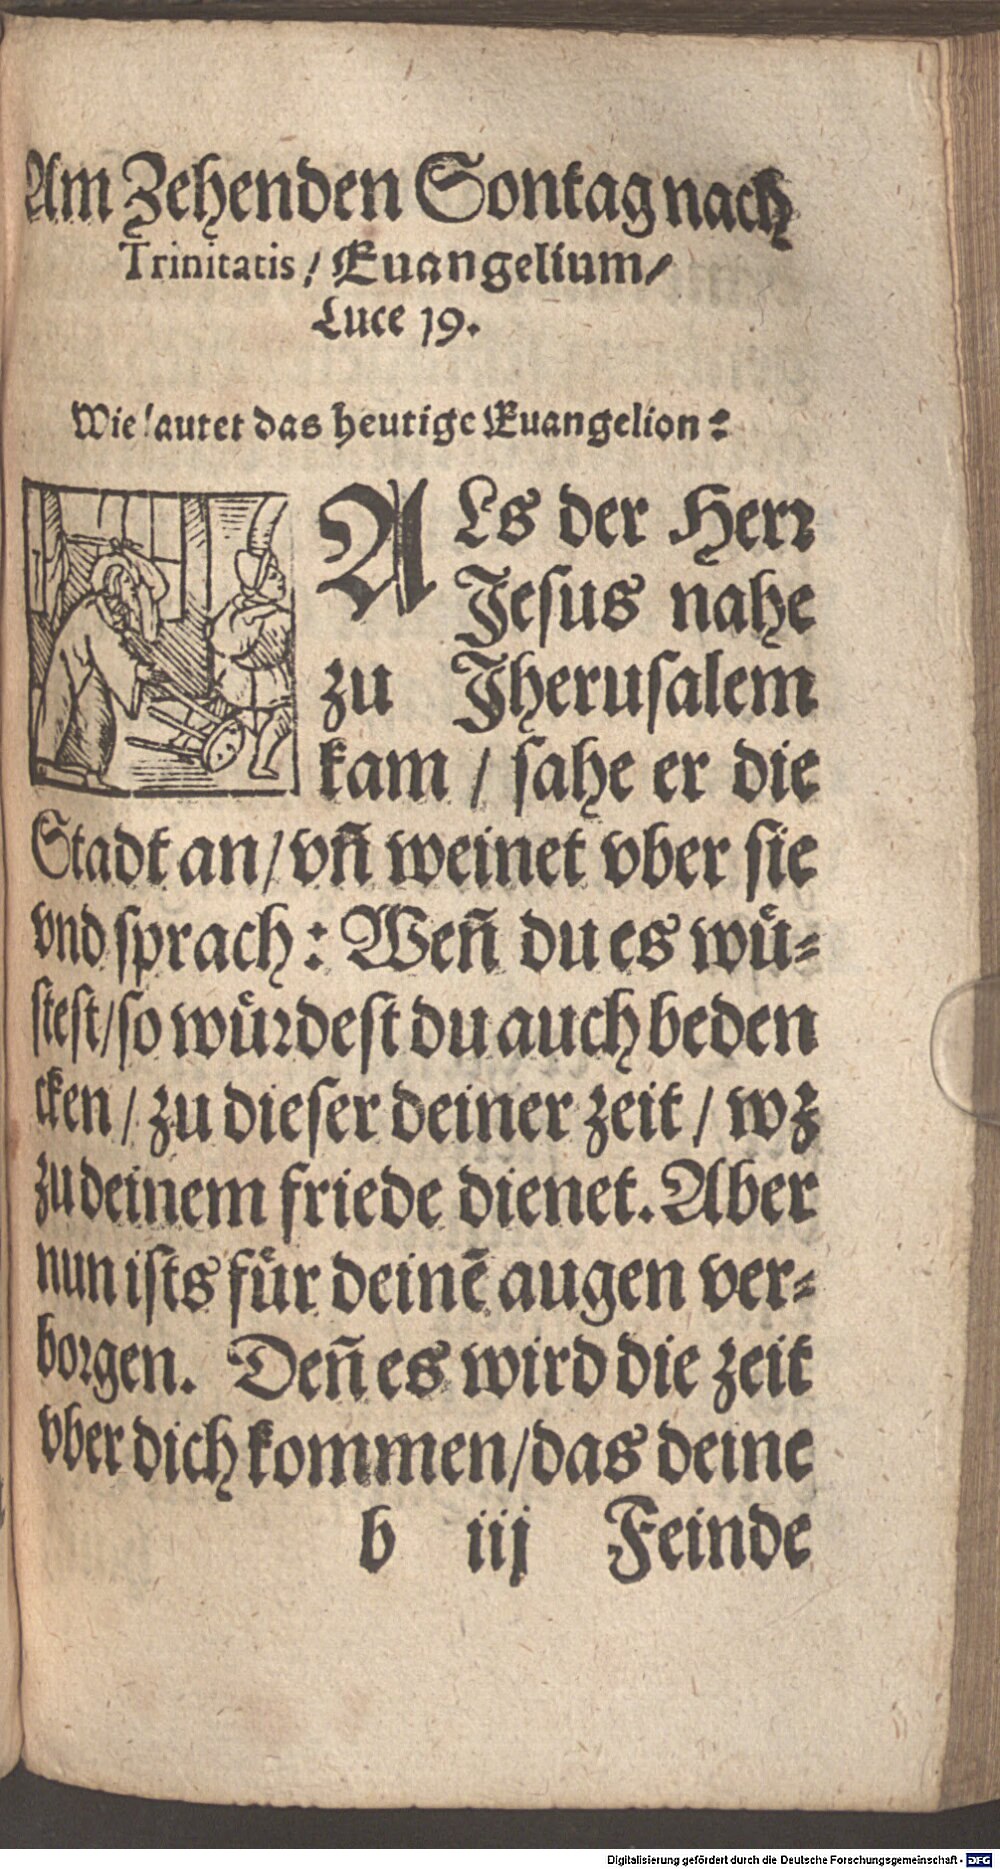 Am Zehenden Sontag nach
Trinitatis / Euangelium /
Luce 19.
Wie lautet das heutige Euangelion:
ALs der Herr
Jesus nahe
zu Jherusalem
kam / sahe er die
Stadt an / vn̄ weinet vber sie
vnd sprach: Wen̄ du es wuͤ-
stest / so wuͤrdest du auch beden
cken / zu dieser deiner zeit / wz
zu deinem friede dienet. Aber
nun ists fuͤr deinē augen ver-
borgen. Den̄ es wird die zeit
vber dich kommen / das deine
b iij Feinde
Digitalisierung gefördert durch die Deutsche Forschungsgemeinschaft - DFG